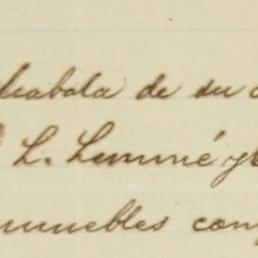 alcabala de su
L. Lemmé y
muebles con